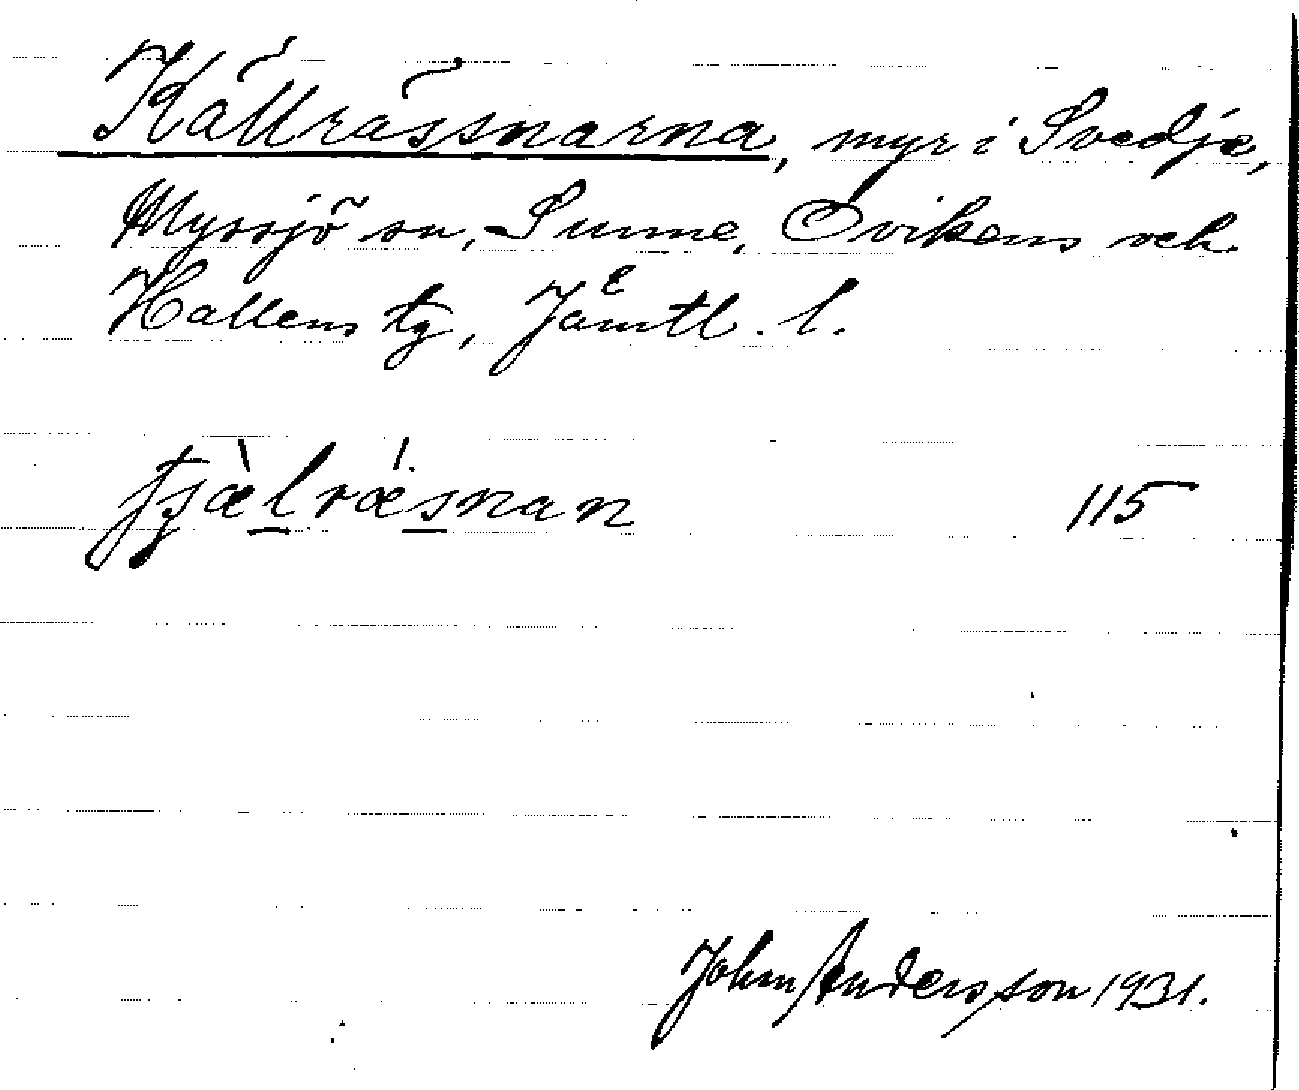 Källrässnarna, myr i Svedje,
Myssjö sn, Sunne, Ovikens och
Hallens tg, Jämtl. l.
tjæ̀lrǽsnan 115
John Andersson 1931.